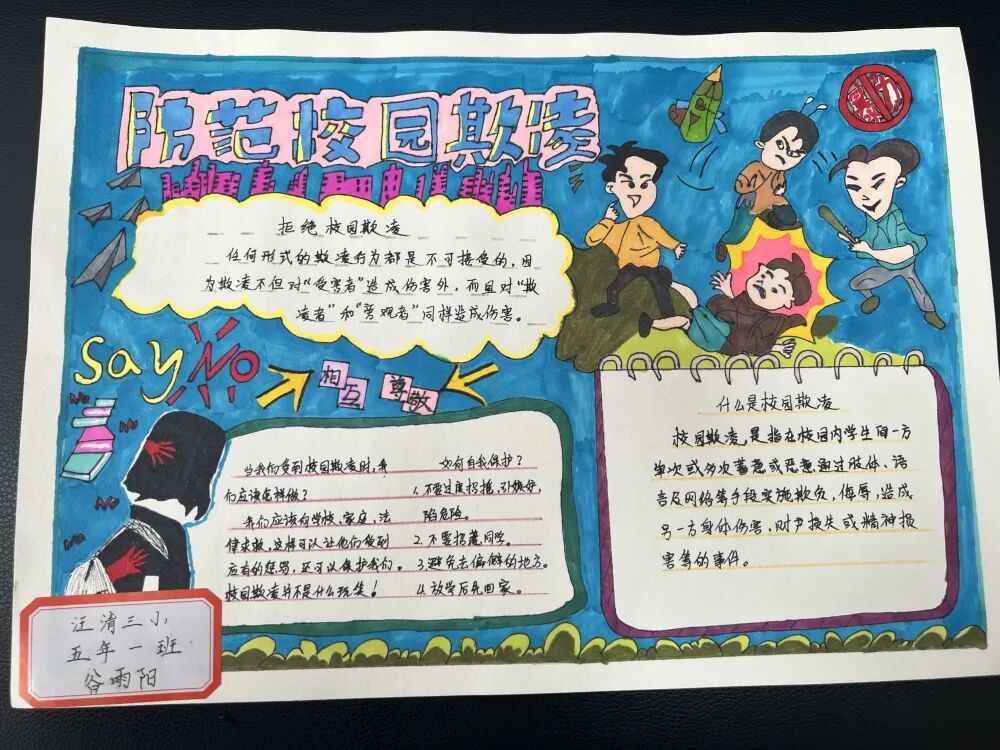 防范校园欺凌
拒绝校园欺凌
任何形式的欺凌行为都是不可接受的，因
为欺凌不但对“受害者”造成伤害外，而且对“欺
凌者”和“旁观者”同样造成伤害。
Say No
相互 尊敬
No
No
No
No
当我们受到校园欺凌时，我
们应该怎样做？
我们应该向学校、家庭、法
律求救，这样可以让他们受到
应有的惩罚，还可以保护我们。
校园欺凌并不是什么玩笑！
如何自我保护？
1.不要过度招摇，引娱好，
陷危险。
2.不要招惹同学。
3.避免去偏僻的地方。
4.放学后先回家。
什么是校园欺凌
校园欺凌，是指在校园内学生间一方
单次或多次蓄意或恶意通过肢体、语
言及网络等手段实施欺负，侮辱，造成
另一方身体伤害，财产损失或精神损
害等的事件。
汪清三小
五年一班
谷雨阳